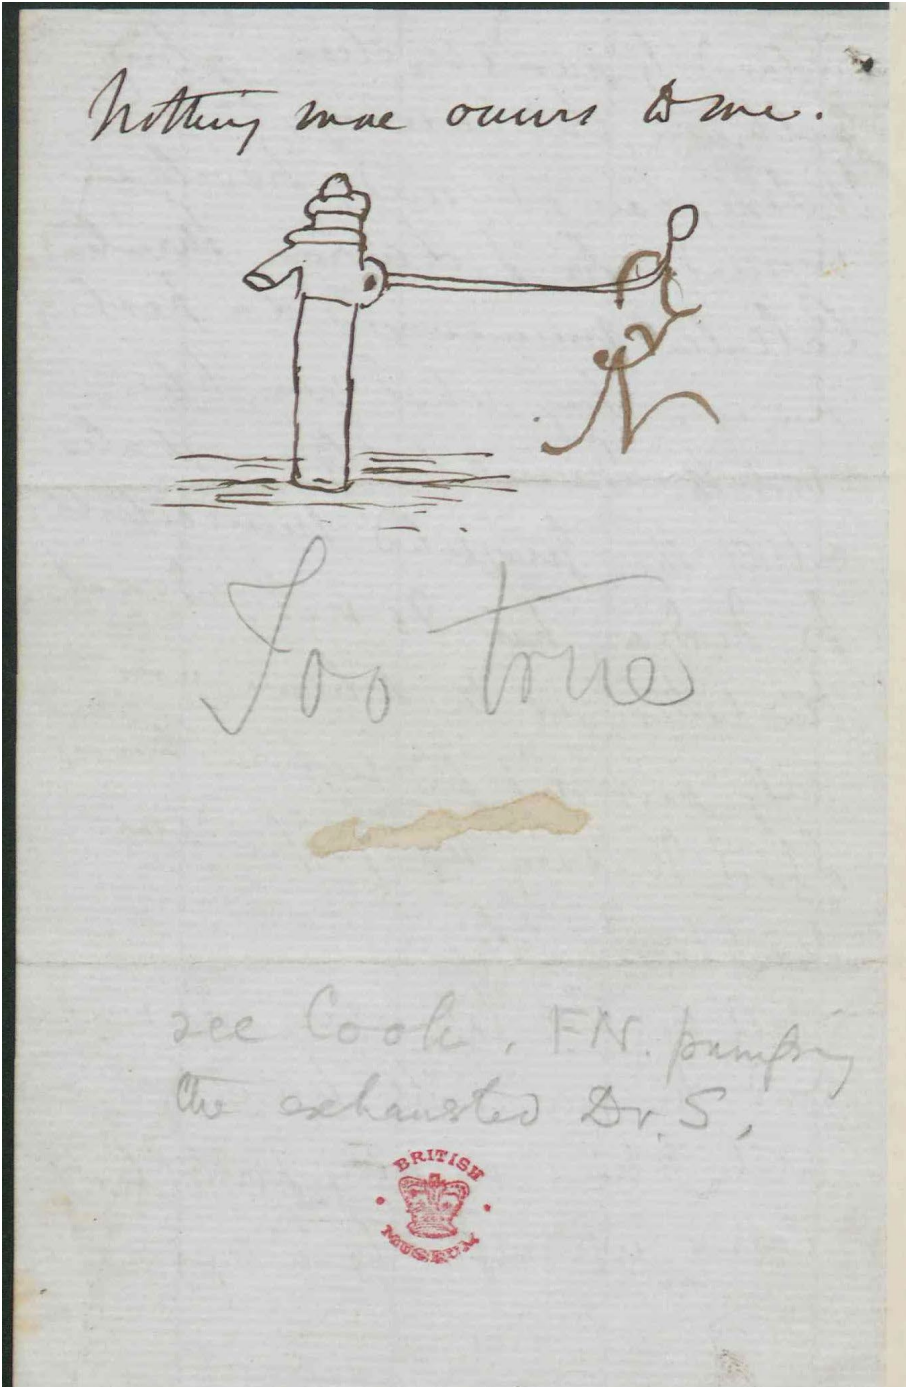 Nothing more occurs to me.
FN
Too true
see Cook, FN. pumping
the exhausted Dr. S,
BRITISH
MUSEUM